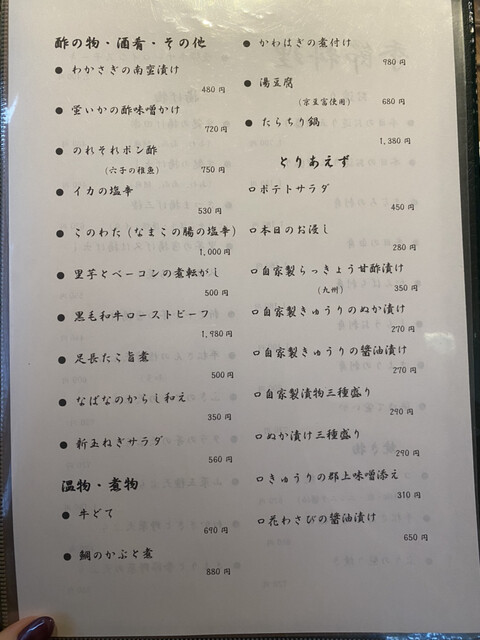 酢の物・酒肴・その他
● わかさぎの南蛮漬け
480円
● 蛍いかの酢味噌かけ
720円
● のれそれポン酢
(穴子の稚魚) 750円
● イカの塩辛
530円
● このわた(なまこの腸の塩辛)
1,000円
● 里芋とベーコンの煮転がし
500円
● 黒毛和牛ローストビーフ
1,980円
● 足長たこ旨煮
500円
● なばなのからし和え
350円
● 新玉ねぎサラダ
560円
温物・煮物
● 牛どて
690円
● 鯛のかぶと煮
880円
● かわはぎの煮付け
980円
● 湯豆腐
(京豆富使用) 680円
● たらちり鍋
1,380円
とりあえず
□ポテトサラダ
450円
□本日のお浸し
280円
□自家製らっきょう甘酢漬け
(九州) 350円
□自家製きゅうりのぬか漬け
270円
□自家製きゅうりの醤油漬け
270円
□自家製漬物三種盛り
290円
□ぬか漬け三種盛り
290円
□きゅうりの郡上味噌添え
310円
□花わさびの醤油漬け
650円